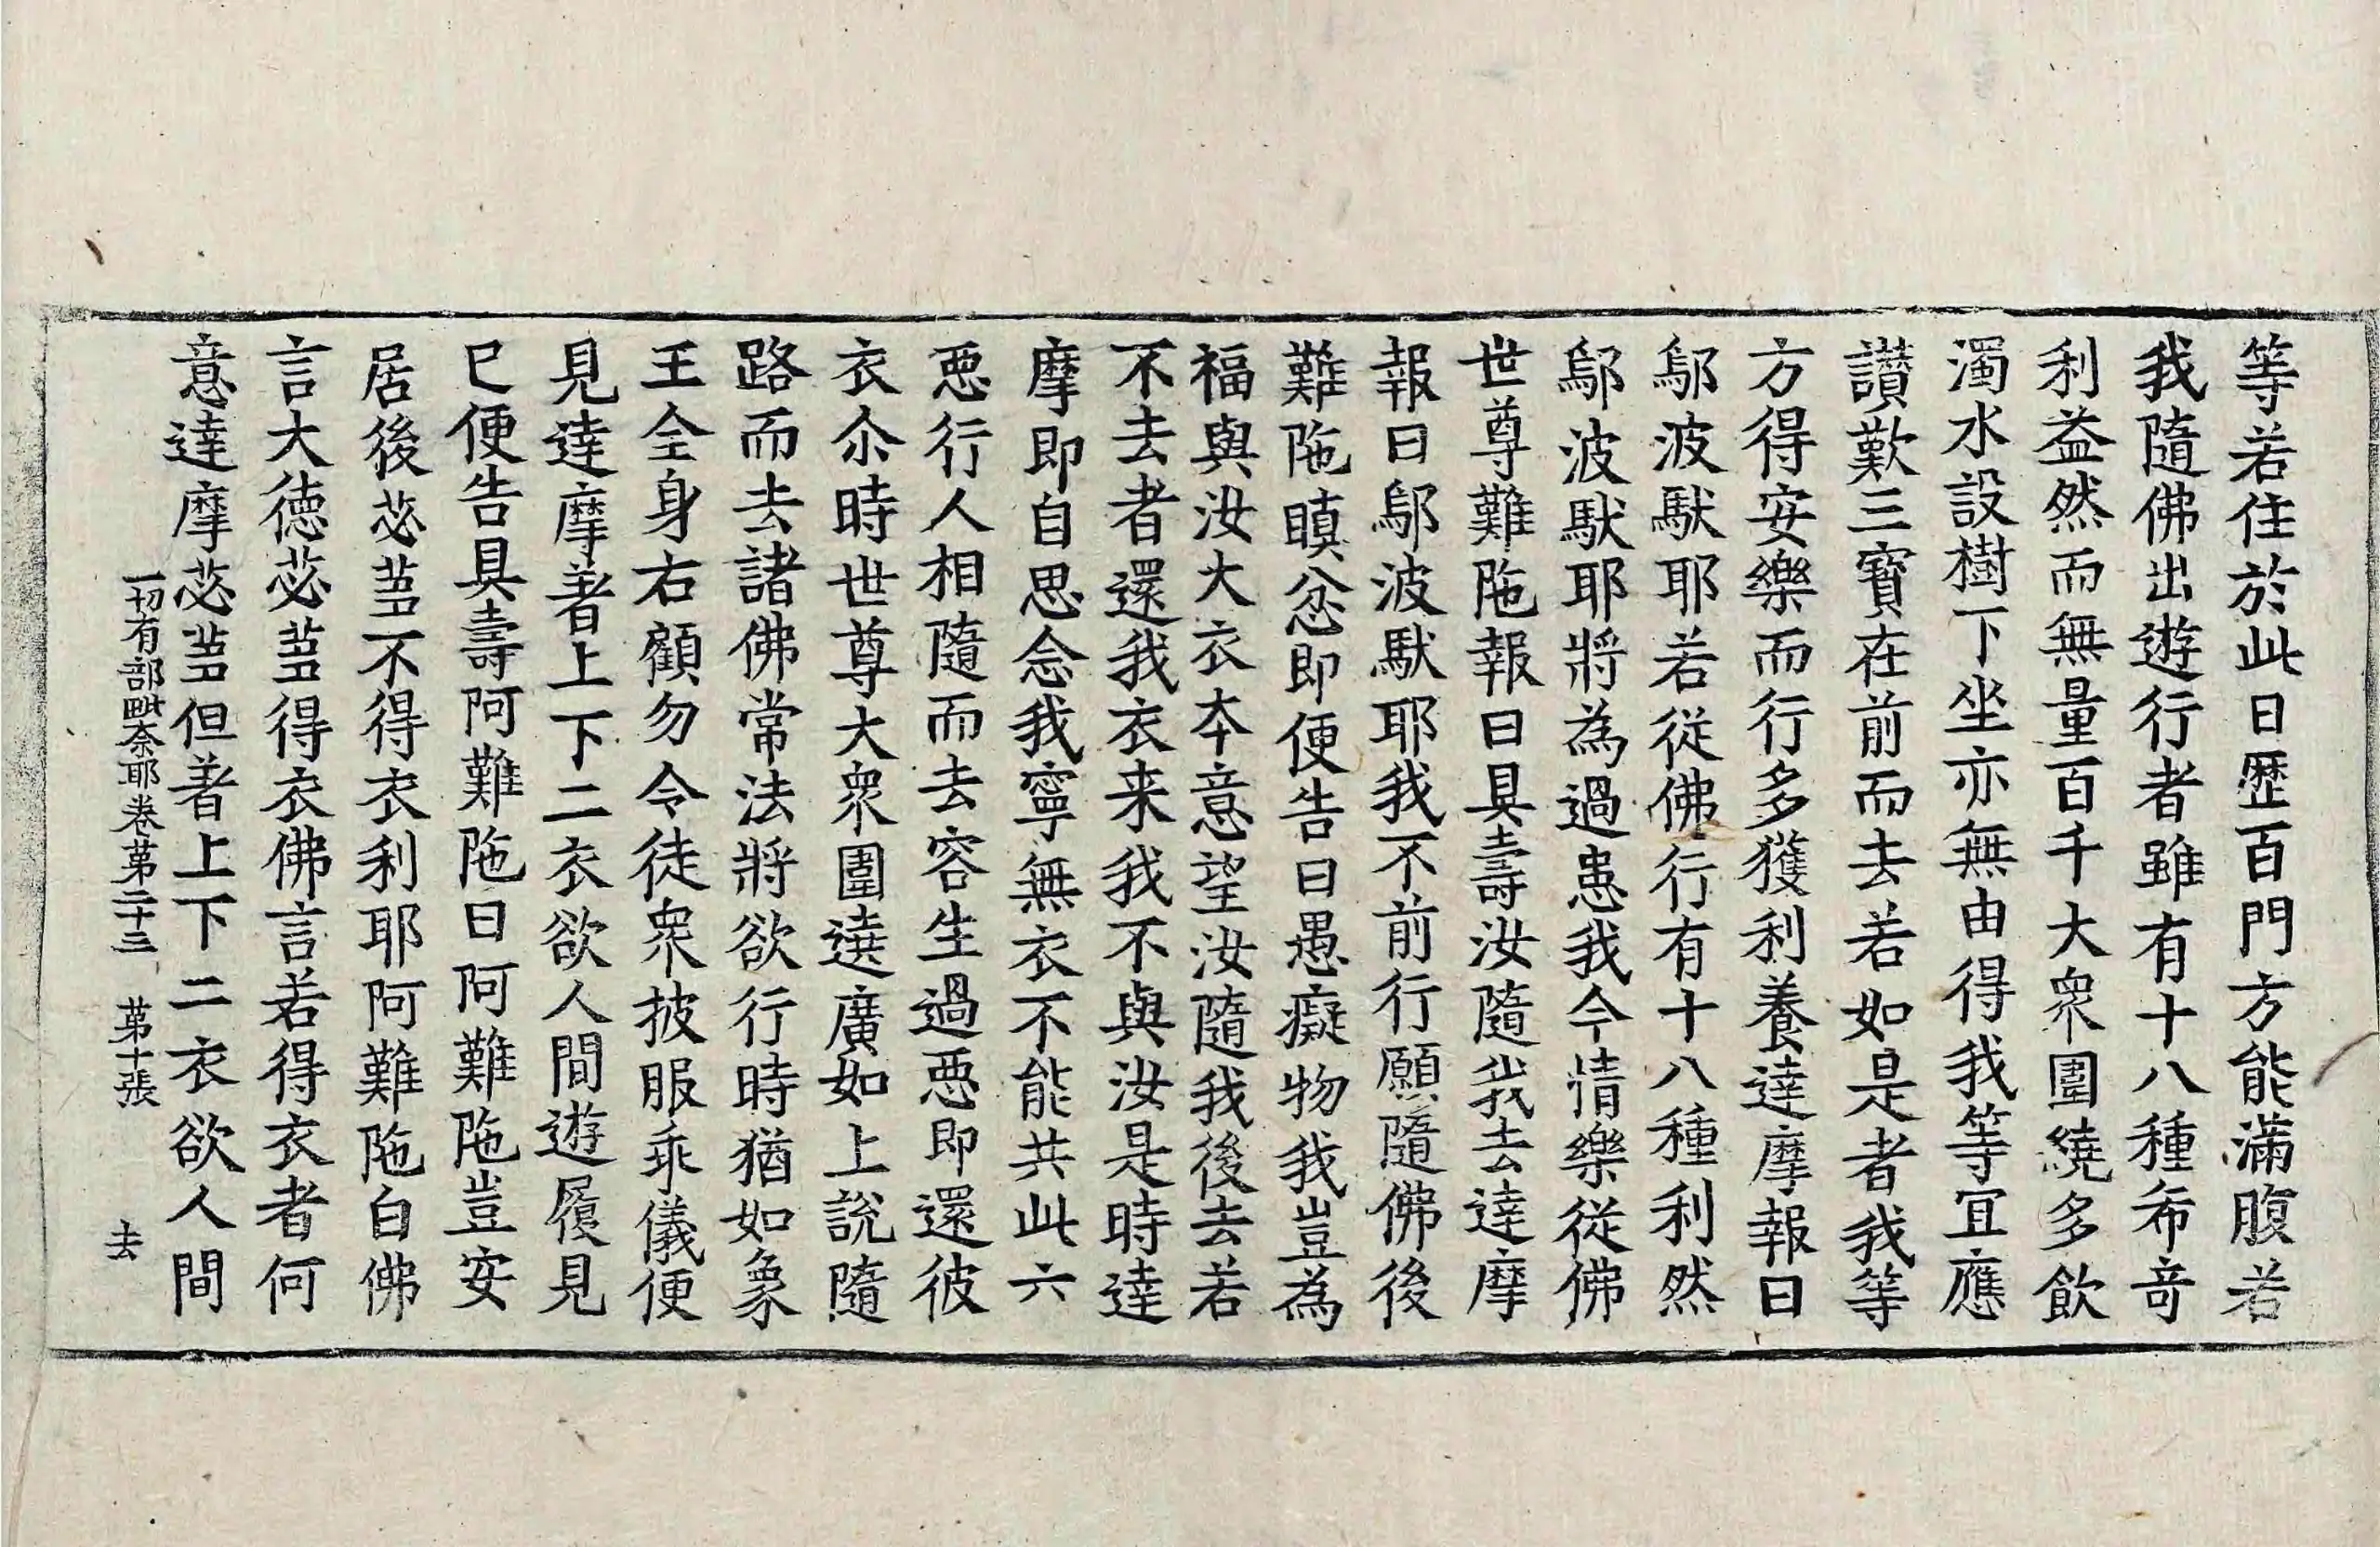 等若住於此日歷百門方能滿腹若
我隨佛出遊行者雖有十八種希奇
利益然而無量百千大衆圍繞多飲
濁水設樹下坐亦無由得我等冝應
讃歎三寳在前而去若如是者我等
方得安樂而行多獲利養達摩報曰
鄔波馱耶若從佛行有十八種利然
鄔波馱耶將為過患我今情樂從佛
世尊難陁報曰具壽汝隨我去達摩
報曰鄔波馱耶我不前行願隨佛後
難陁瞋忿即便告曰愚癡物我豈為
福與汝大衣夲意望汝隨我後去若
不去者還我衣来我不與汝是時達
摩即自思念我寧無衣不能共此六
惡行人相隨而去容生過惡即還彼
衣尒時世尊大衆圍遶廣如上說隨
路而去諸佛常法將欲行時猶如象
王全身右顧勿令徒衆披服乖儀便
見達摩著上下二衣欲人間遊履見
已便告具壽阿難陁曰阿難陁豈安
居後苾蒭不得衣利耶阿難陁白佛
言大德苾蒭得衣佛言若得衣者何
意達摩苾蒭但著上下二衣欲人間
一切有部毗奈耶卷苐二十三 苐十張 去